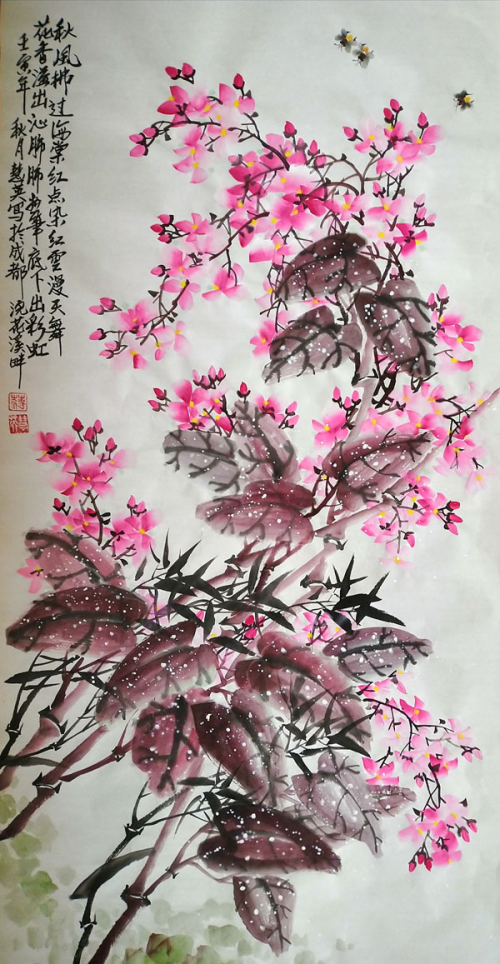 秋风拂过海棠红点染红雲漫天舞
花香溢出沁脾肺如筆底下出彩虹
壬寅年 秋月慧英写於成都 浣花溪畔